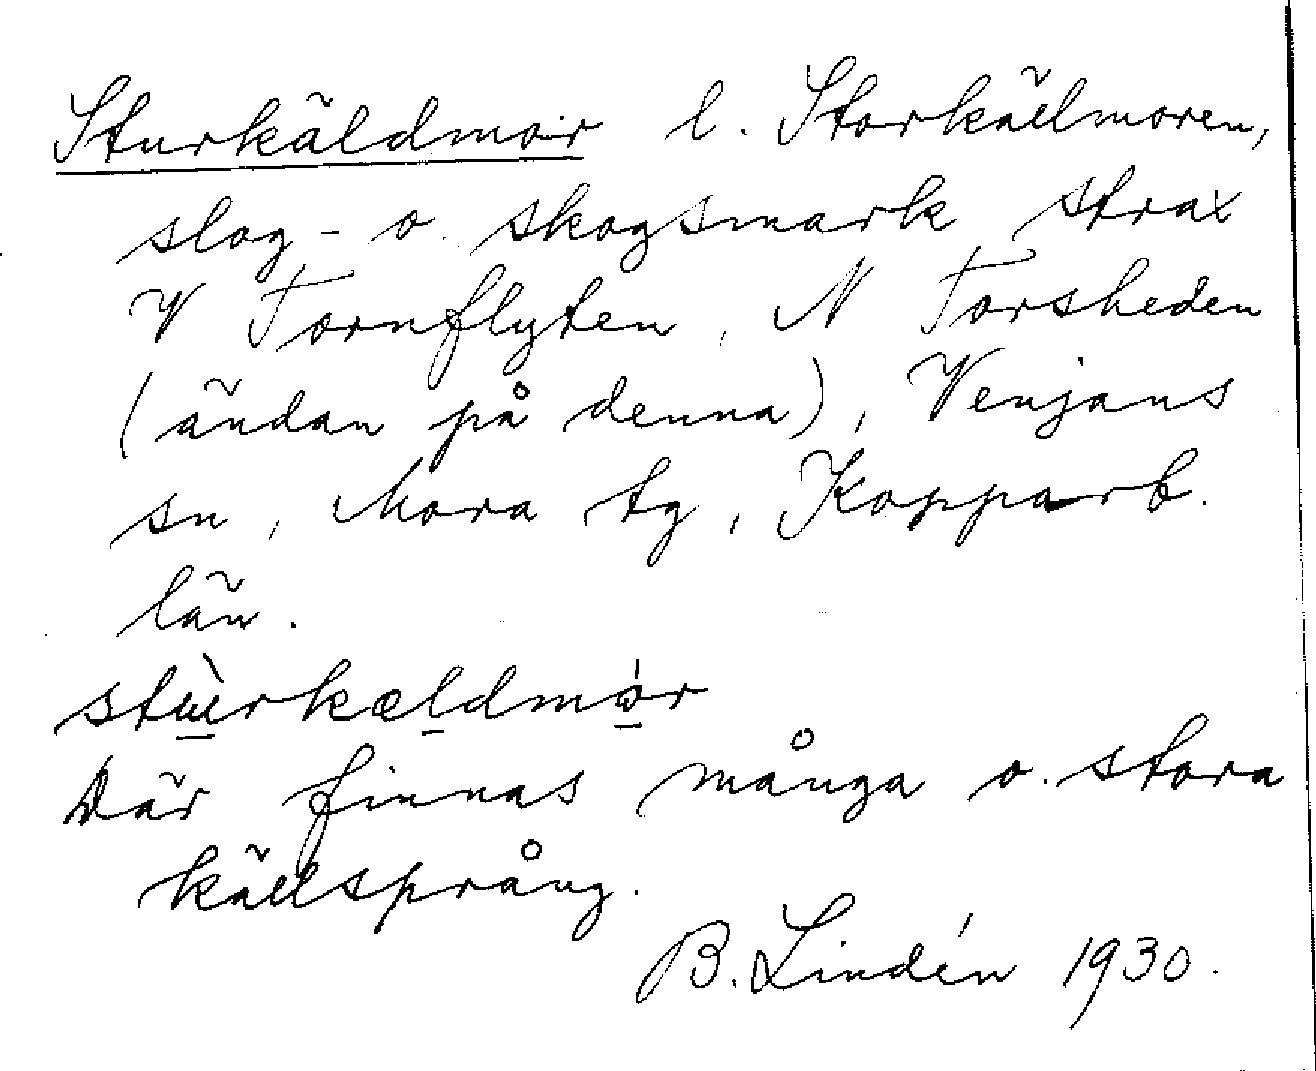 Sturkäldmor l. Storkällmoren,
slog- o. skogsmark strax
V Tornflyten, N Torsheden
(ändan på denna), Venjans
sn, Mora tg, Kopparb.
län.
stùrkældmór
Där finnas många o. stora
källsprång.
B. Lindén 1930.